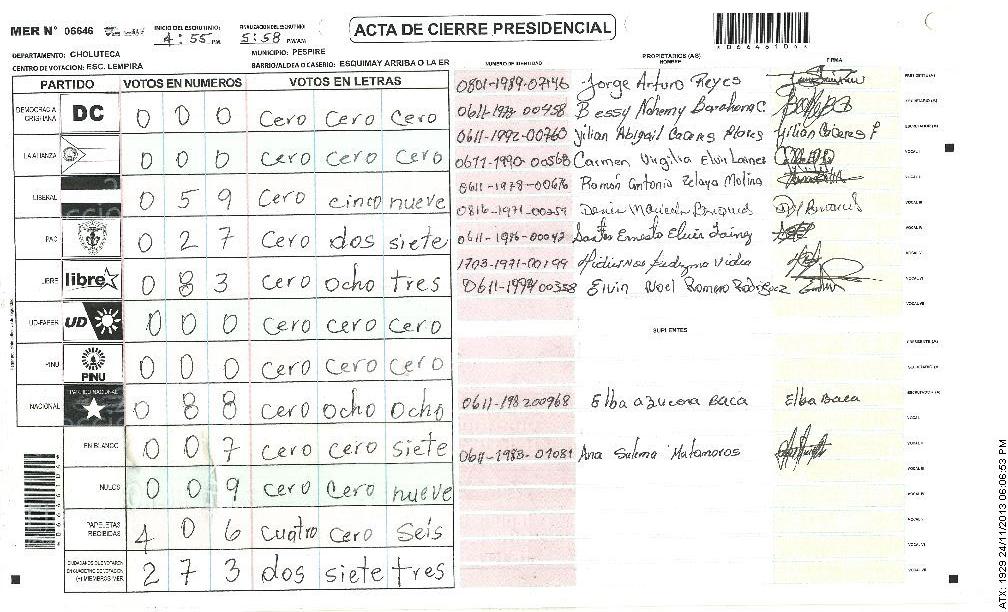 MER N° 06646 INICIO DEL ESCRUTINIO: 4:55 P.M. FINALIZACION DEL ESCRUTINIO: 5:58 P.M/A.M. ACTA DE CIERRE PRESIDENCIAL
DEPARTAMENTO: CHOLUTECA MUNICIPIO: PESPIRE
CENTRO DE VOTACION: ESC. LEMPIRA BARRIO/ALDEA O CASERIO: ESQUIMAY ARRIBA O LA ER
PARTIDO VOTOS EN NUMEROS VOTOS EN LETRAS
DEMOCRACIA CRISTIANA DC 0 0 0 Cero Cero Cero
LA ALIANZA 0 0 0 Cero Cero Cero
LIBERAL 0 5 9 Cero cinco nueve
PAC 0 2 7 Cero dos siete
LIBRE libre 0 8 3 Cero ocho tres
UD-FAPER UD 0 0 0 Cero cero cero
PINU PINU 0 0 0 Cero Cero Cero
NACIONAL PARTIDO NACIONAL 0 8 8 Cero ocho Ocho
EN BLANCO 0 0 7 Cero cero siete
NULOS 0 0 9 Cero Cero nueve
PAPELETAS RECIBIDAS 4 0 6 cuatro cero seis
2 7 3 dos siete tres
NUMERO DE IDENTIDAD PROPIETARIOS (AS) NOMBRE FIRMA
0801-1989-07446 Jorge Arturo Reyes PRESIDENTE (A)
Bessy Nohemy Barahona C. SECRETARIO (A)
0611-1992-00760 Yilian Abigail Caceres Flores Yilian Cáceres F ESCRUTADOR (A)
0611-1990-00568 Carmen Virgilia Elvir Lainez VOCAL I
0611-1978-00676 Ramón Antonio Zelaya Molina VOCAL II
0816-1971-00259 VOCAL III
Santos Ernesto Elvir Lainez VOCAL IV
1703-1971-00199 VOCAL V
Elvin Noel Romero Rodriguez VOCAL VI
VOCAL VII
SUPLENTES
PRESIDENTE (A)
SECRETARIO (A)
0611-198200968 Elba azucena Baca Elba Baca ESCRUTADOR (A)
VOCAL I
0611-1983-01081 Ana Salma Matamoros VOCAL II
VOCAL III
VOCAL IV
VOCAL V
VOCAL VI
VOCAL VII
ATX: 1929 24/11/2013 06:06:53 PM